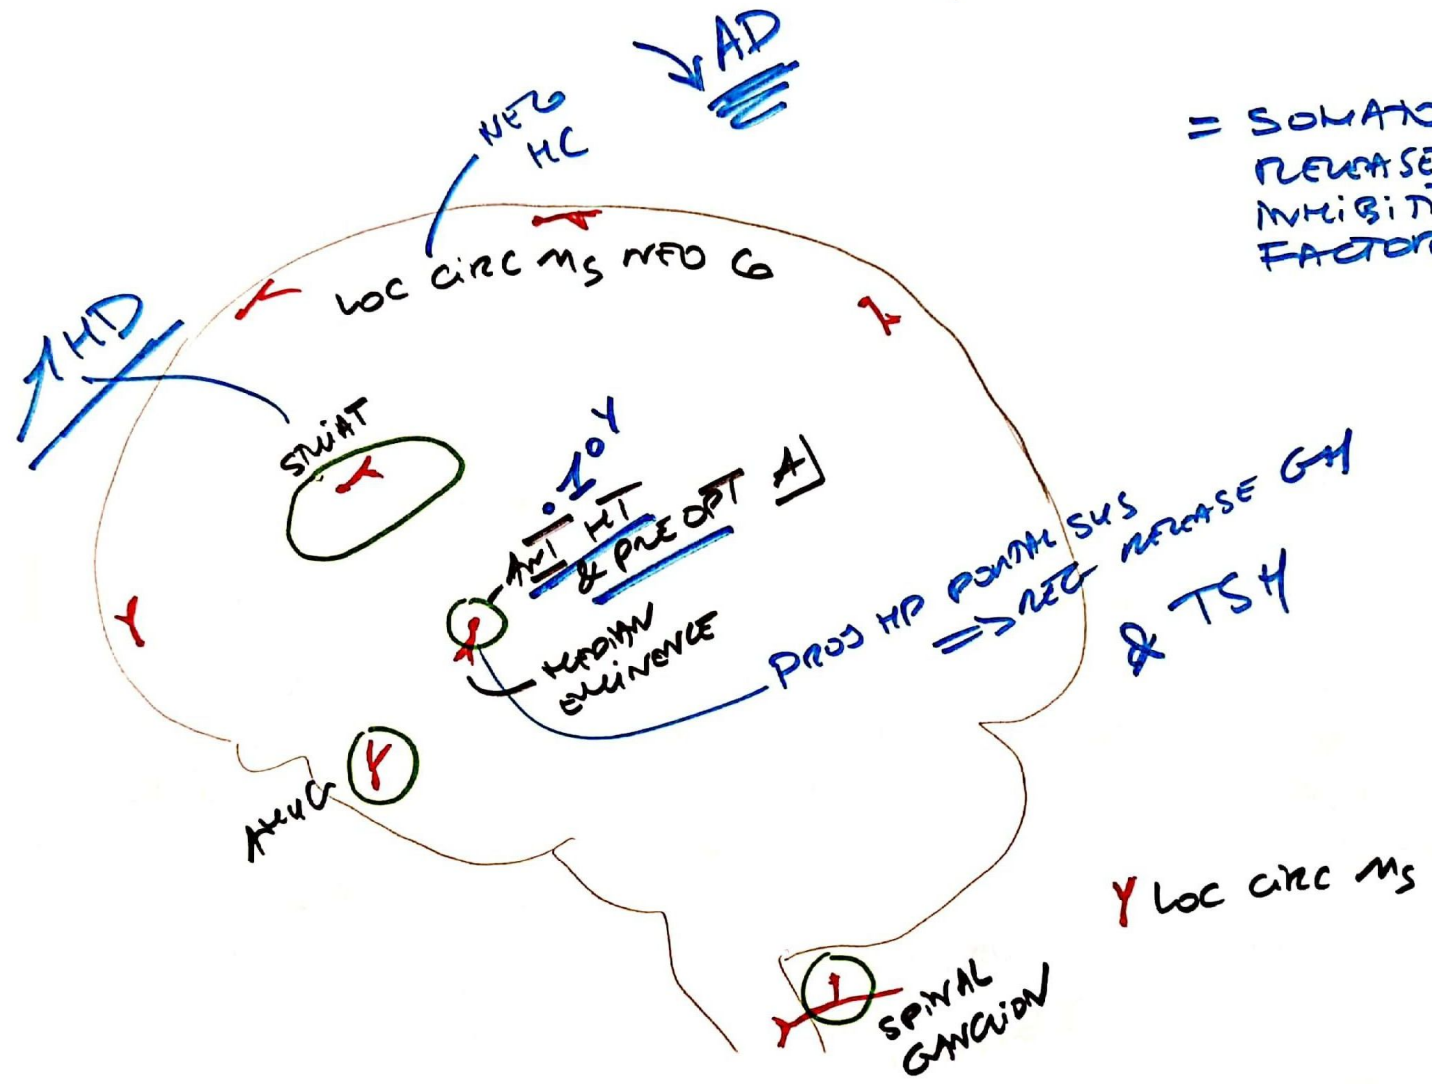 AD
NEO
HC
= SOMATO
RELEASE
INHIBIT
FACTOR
LOC CIRC NS NEO CO
↑HD
STRIAT
1°
ANT HT
& PRE OPT A
MEDIAN
EMINENCE
PROJ HP PORTAL SYS
=> REG RELEASE GH
& TSH
AMYG
LOC CIRC NS
SPINAL
GANGLION